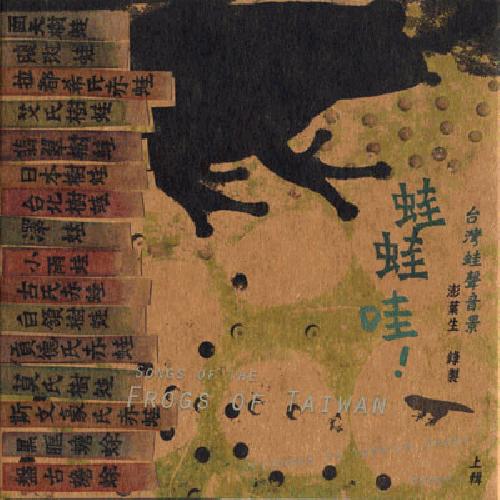 面天樹蛙
虎皮蛙
拉都希氏赤蛙
艾氏樹蛙
翡翠樹蛙
日本樹蛙
台北樹蛙
澤蛙
小雨蛙
古氏赤蛙
白頷樹蛙
貢德氏赤蛙
莫氏樹蛙
斯文豪氏赤蛙
黑眶蟾蜍
盤古蟾蜍
蛙
蛙
哇!
台灣蛙聲音景
澎葉生 錄製
SONGS OF THE
FROGS OF TAIWAN
上輯